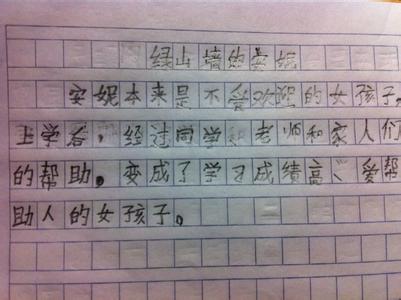 绿山墙的安妮
安妮本来是不受欢迎的女孩子，
上学后，经过同学 老师和家人们
的帮助。变成了学习成绩高、爱帮
助人的女孩子。